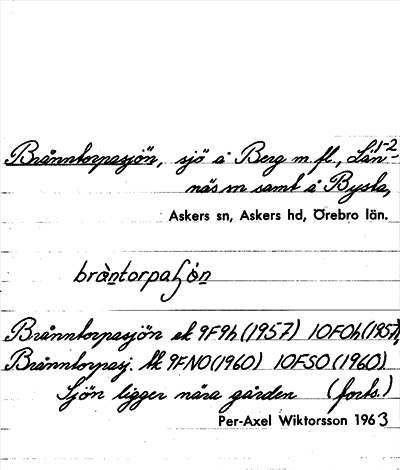 Brånntorpasjön, sjö å Berg m fl., Län-1-2
näs m samt å Bysta,
Askers sn, Askers hd, Örebro län.
bràntorpaʃön
Brånntorpasjön ek 9F9h (1957) 10F0h (1957),
Brånntorpasj. tk 9FNO (1960) 10FSO (1960).
Sjön ligger nära gården (forts.)
Per-Axel Wiktorsson 1963